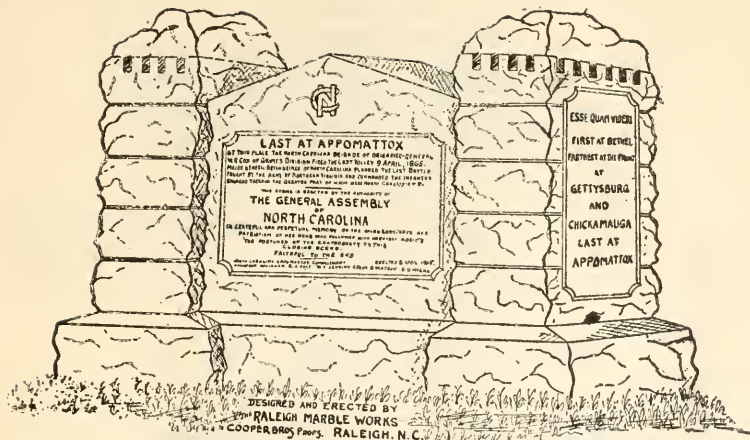 NC
LAST AT APPOMATTOX
AT THIS PLACE THE NORTH CAROLINA BRIGADE OF BRIGADIER-GENERAL
W R COX OF GRIMES DIVISION FIRED THE LAST VOLLEY 9 APRIL, 1865.
MAJOR GENERAL BRYAN GRIMES OF NORTH CAROLINA PLANNED THE LAST BATTLE
FOUGHT BY THE ARMY OF NORTHERN VIRGINIA AND COMMANDED THE INFANTRY
ENGAGED THEREIN THE GREATER PART OF WHOM WERE NORTH CAROLINIANS.
THIS STONE IS ERECTED BY THE AUTHORITY OF
THE GENERAL ASSEMBLY
OF
NORTH CAROLINA
IN GRATEFUL AND PERPETUAL MEMORY OF THE AND
OF HER SONS WHO FOLLOWED WITH
THE FORTUNES OF THE CONFEDERACY TO THIS
CLOSING SCENE.
FAITHFUL TO THE END
NORTH CAROLINA APPOMATTOX ERECTED 9 APRIL 1905.
ESSE QUAM VIDERI
FIRST AT BETHEL
FARTHEST AT THE FRONT
AT
GETTYSBURG
AND
CHICKAMAUGA
LAST AT
APPOMATTOX
DESIGNED AND ERECTED BY
THE RALEIGH MARBLE WORKS
COOPER BROS PROPS. RALEIGH, N.C.